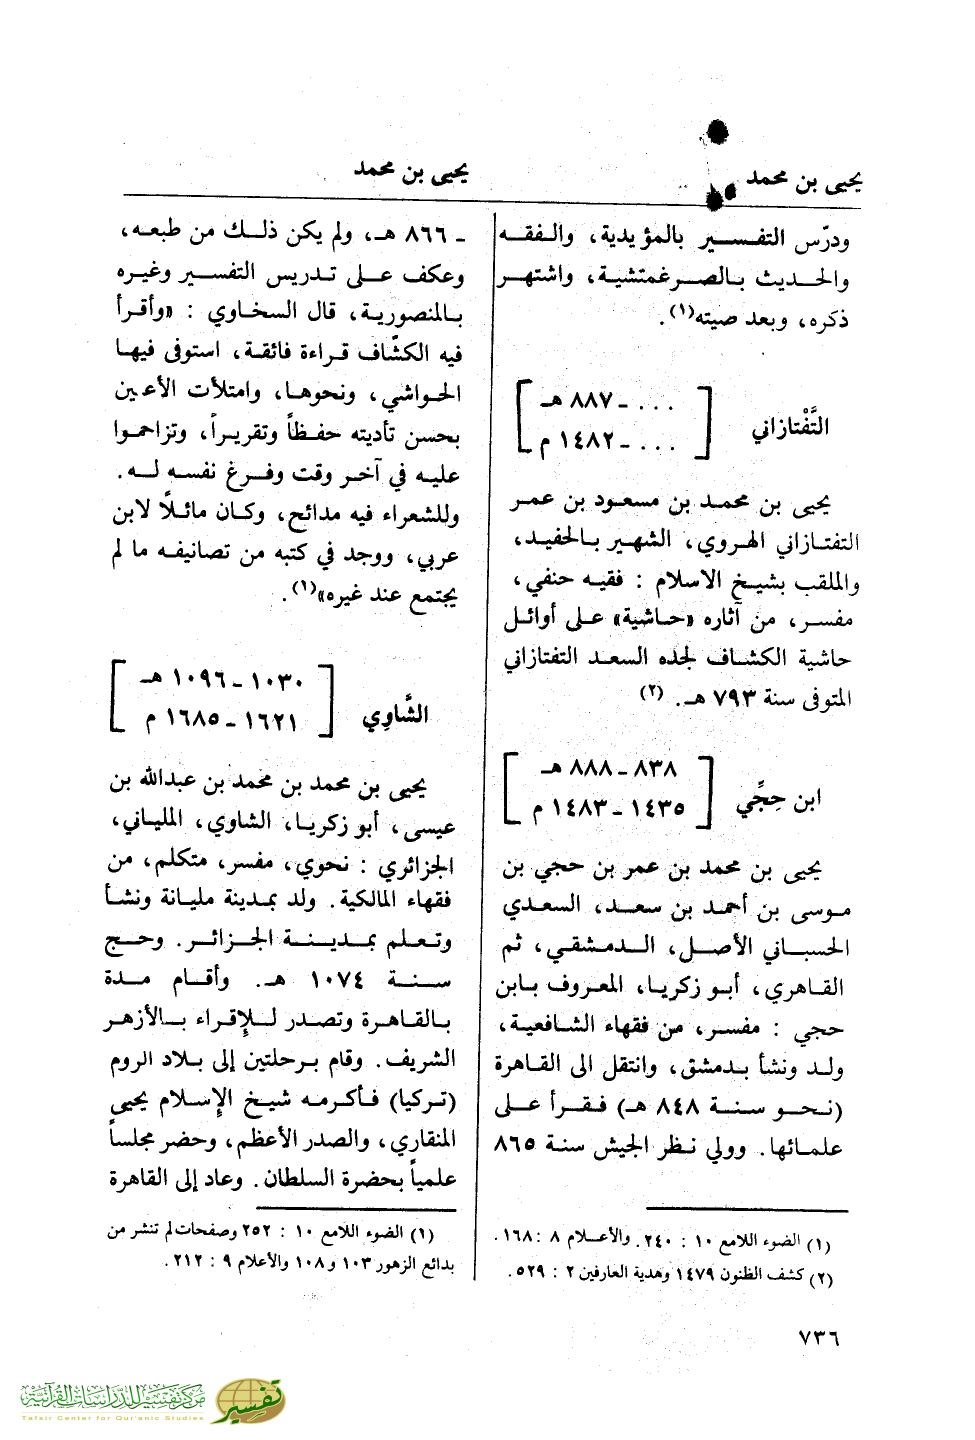 يحيى بن محمد
يحيى بن محمد
ودرّس التفسير بالمؤيدية، والفقه
والحديث بالصرغمتشية، واشتهر
ذكره، وبعد صيته(١).
التَّفْتازاني
... - ٨٨٧ هـ
... - ١٤٨٢ م
يحيى بن محمد بن مسعود بن عمر
التفتازاني الهروي، الشهير بالحفيد،
والملقب بشيخ الاسلام : فقيه حنفي،
مفسر، من آثاره «حاشية» على أوائل
حاشية الكشاف لجده السعد التفتازاني
المتوفى سنة ٧٩٣ هـ. (٢)
ابن حِجِّي
٨٣٨ - ٨٨٨ هـ
١٤٣٥ - ١٤٨٣ م
يحيى بن محمد بن عمر بن حجي بن
موسى بن أحمد بن سعد، السعدي
الحسباني الأصل، الدمشقي، ثم
القاهري، أبو زكريا، المعروف بابن
حجي : مفسر، من فقهاء الشافعية،
ولد ونشأ بدمشق، وانتقل الى القاهرة
(نحو سنة ٨٤٨ هـ) فقرأ على
علمائها. وولي نظر الجيش سنة ٨٦٥
(١) الضوء اللامع ١٠ : ٢٤٠. والأعلام ٨ : ١٦٨.
(٢) كشف الظنون ١٤٧٩ وهدية العارفين ٢ : ٥٢٩.
- ٨٦٦ هـ، ولم يكن ذلك من طبعه،
وعكف على تدريس التفسير وغيره
بالمنصورية، قال السخاوي : «وأقرأ
فيه الكشّاف قراءة فائقة، استوفى فيها
الحواشي، ونحوها، وامتلأت الأعين
بحسن تأديته حفظاً وتقريراً، وتزاحموا
عليه في آخر وقت وفرغ نفسه له.
وللشعراء فيه مدائح، وكان مائلاً لابن
عربي، ووجد في كتبه من تصانيفه ما لم
يجتمع عند غيره»(١).
الشَّاوِي
١٠٣٠ - ١٠٩٦ هـ
١٦٢١ - ١٦٨٥ م
يحيى بن محمد بن محمد بن عبدالله بن
عيسى، أبو زكريا، الشاوي، الملياني،
الجزائري : نحوي، مفسر، متكلم، من
فقهاء المالكية. ولد بمدينة مليانة ونشأ
وتعلم بمدينة الجزائر. وحج
سنة ١٠٧٤ هـ. وأقام مدة
بالقاهرة وتصدر للإقراء بالأزهر
الشريف. وقام برحلتين إلى بلاد الروم
(تركيا) فأكرمه شيخ الإسلام يحيى
المنقاري، والصدر الأعظم، وحضر مجلساً
علمياً بحضرة السلطان. وعاد إلى القاهرة
(١) الضوء اللامع ١٠ : ٢٥٢ وصفحات لم تنشر من
بدائع الزهور ١٠٣ و ١٠٨ والأعلام ٩ : ٢١٢.
٧٣٦
مركز تفسير للدراسات القرآنية
Tafsir Center for Qur'anic Studies
تفسير